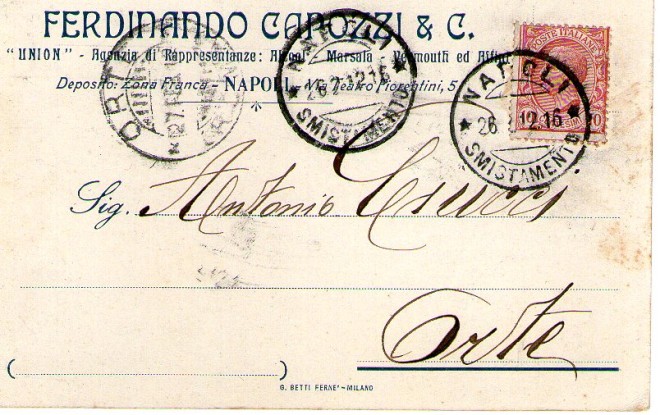 FERDINANDO CANOZZI & C.
"UNION" - Agenzia di Rappresentanze: Alcool - Marsala - Vermouth ed Affini
Deposito: Zona Franca - NAPOLI - Via Teatro Fiorentini, 5
ORTE
NAPOLI
26.2.12.16
SMISTAMENTO
POSTE ITALIANE
NAPOLI
26 12.16
SMISTAMENTO
Sig. Antonio
Orte
( )
G. BETTI FERNE' - MILANO